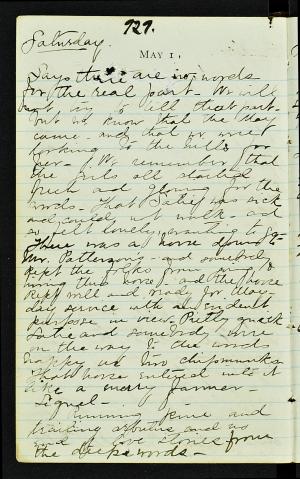 727.
Saturday.
MAY 1,
Says there are no words
for the real part. We will
not try to tell that part.
but we know that the day
came and that we were
looking to the hills for
her. We remember that
the girls all started
fresh and glowing for the
woods. That Satie was sick
and could not walk. and
so felt lonely wanting to go.
There was a horse down to
Mr. Pattersons. and somebody
kept the folks from
this horse, and the horse
kept well and ready for
day service with an evident
purpose in view. Pretty quick
Satie and somebody were
on the way to the woods
as two chipmunks.
That horse entered into it
like a merry farmer.
Sequel.
running pine and
trailing arbutus and no
end of love stories from
the deep woods.